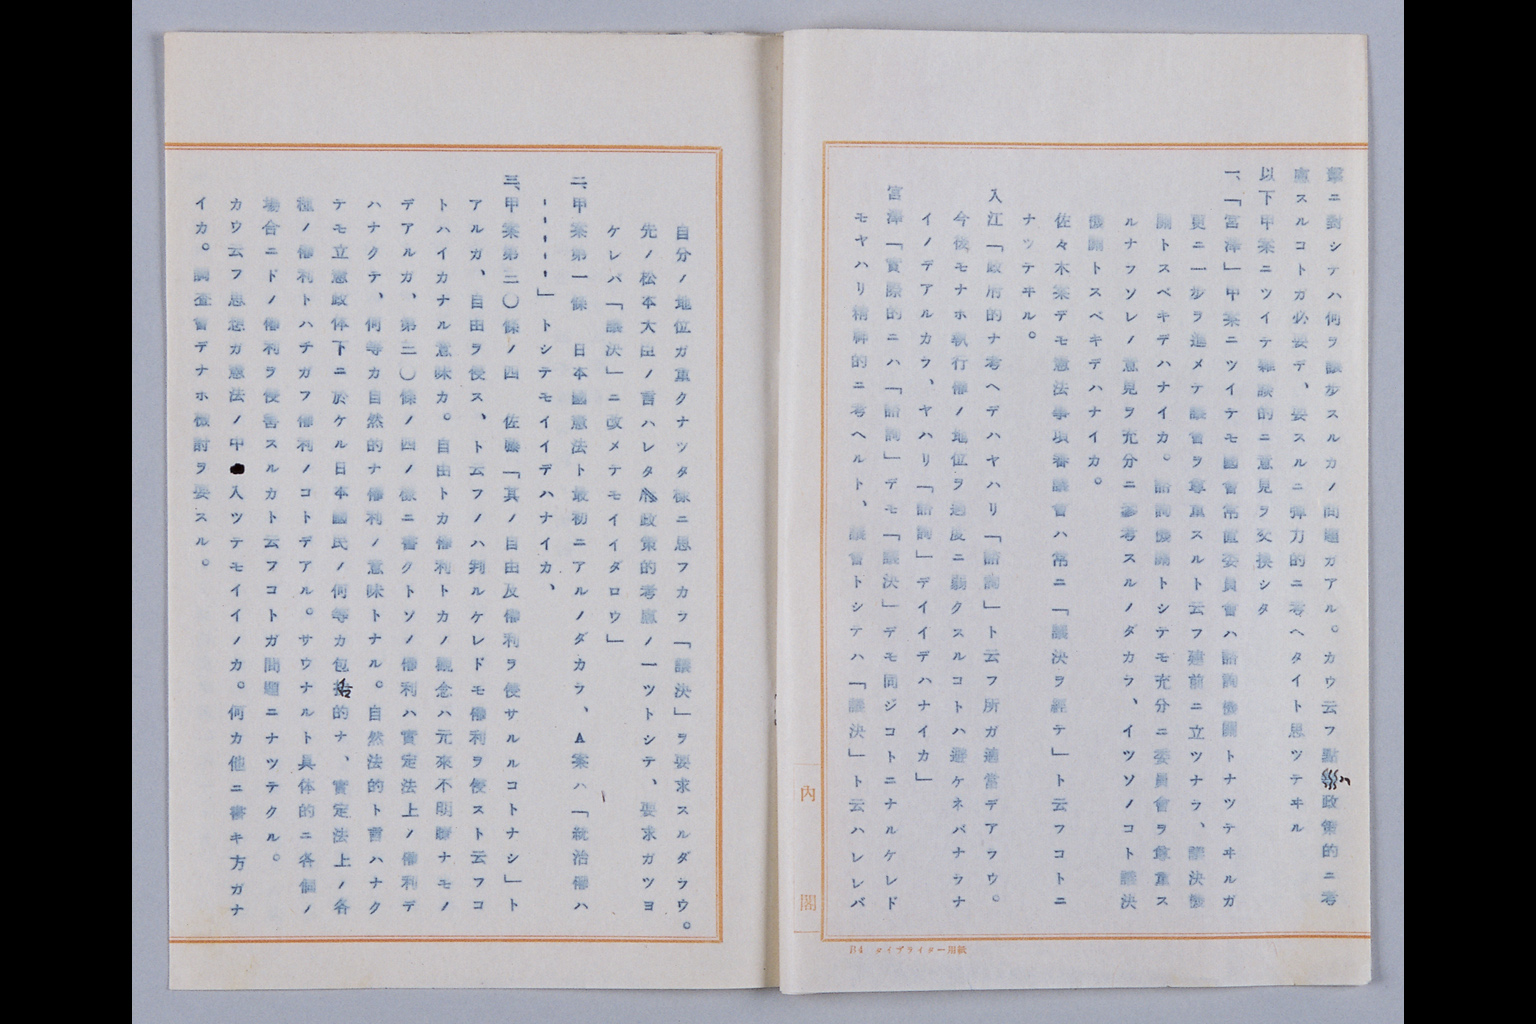 撃ニ對シテハ何ヲ讓歩スルカノ問題ガアル。カウ云フ點ハ政策的ニ考
慮スルコトガ必要デ、要スルニ彈力的ニ考ヘタイト思ツテヰル
以下甲案ニツイテ雜談的ニ意見ヲ交換シタ
一、「宮澤」甲案ニツイテモ國會常置委員會ハ諮詢機關トナツテヰルガ
更ニ一歩ヲ進メテ議會ヲ尊重スルト云フ建前ニ立ツナラ、議決機
關トスベキデハナイカ。諮詢機關トシテモ充分ニ委員會ヲ尊重ス
ルナラソレノ意見ヲ充分ニ參考スルノダカラ、イツソノコト議決
機關トスベキデハナイカ。
佐々木案デモ憲法事項審議會ハ常ニ「議決ヲ經テ」ト云フコトニ
ナツテヰル。
入江「政府的ナ考ヘデハヤハリ「諮詢」ト云フ所ガ適當デアラウ。
今後モナホ執行權ノ地位ヲ過度ニ弱クスルコトハ避ケネバナラナ
イノデアルカラ、ヤハリ「諮詢」デイイデハナイカ」
宮澤「實際的ニハ「諮詢」デモ「議決」デモ同ジコトニナルケレド
モヤハリ精神的ニ考ヘルト、議會トシテハ「議決」ト云ハレレバ
内閣
B4 タイプライター用紙
自分ノ地位ガ重クナツタ樣ニ思フカラ「議決」ヲ要求スルダラウ。
先ノ松本大臣ノ言ハレタ政策的考慮ノ一ツトシテ、要求ガツヨ
ケレバ「議決」ニ改メテモイイダロウ」
二、甲案第一條 日本國憲法ト最初ニアルノダカラ、A案ハ「統治權ハ
-----」トシテモイイデハナイカ、
三、甲案第三〇條ノ四 佐藤「其ノ自由及權利ヲ侵サルルコトナシ」ト
アルガ、自由ヲ侵ス、ト云フノハ判ルケレドモ權利ヲ侵スト云フコ
トハイカナル意味カ。自由トカ權利トカノ觀念ハ元來不明瞭ナモノ
デアルガ、第三〇條ノ四ノ樣ニ書クトソノ權利ハ實定法上ノ權利デ
ハナクテ、何等カ自然的ナ權利ノ意味トナル。自然法的ト言ハナク
テモ立憲政体下ニ於ケル日本國民ノ何等カ包括的ナ、實定法上ノ各
種ノ權利トハチガフ權利ノコトデアル。サウナルト具体的ニ各個ノ
場合ニドノ權利ヲ侵害スルカト云フコトガ問題ニナツテクル。
カウ云フ思想ガ憲法ノ中入ツテモイイノカ。何カ他ニ書キ方ガナ
イカ。調査會デナホ檢討ヲ要スル。